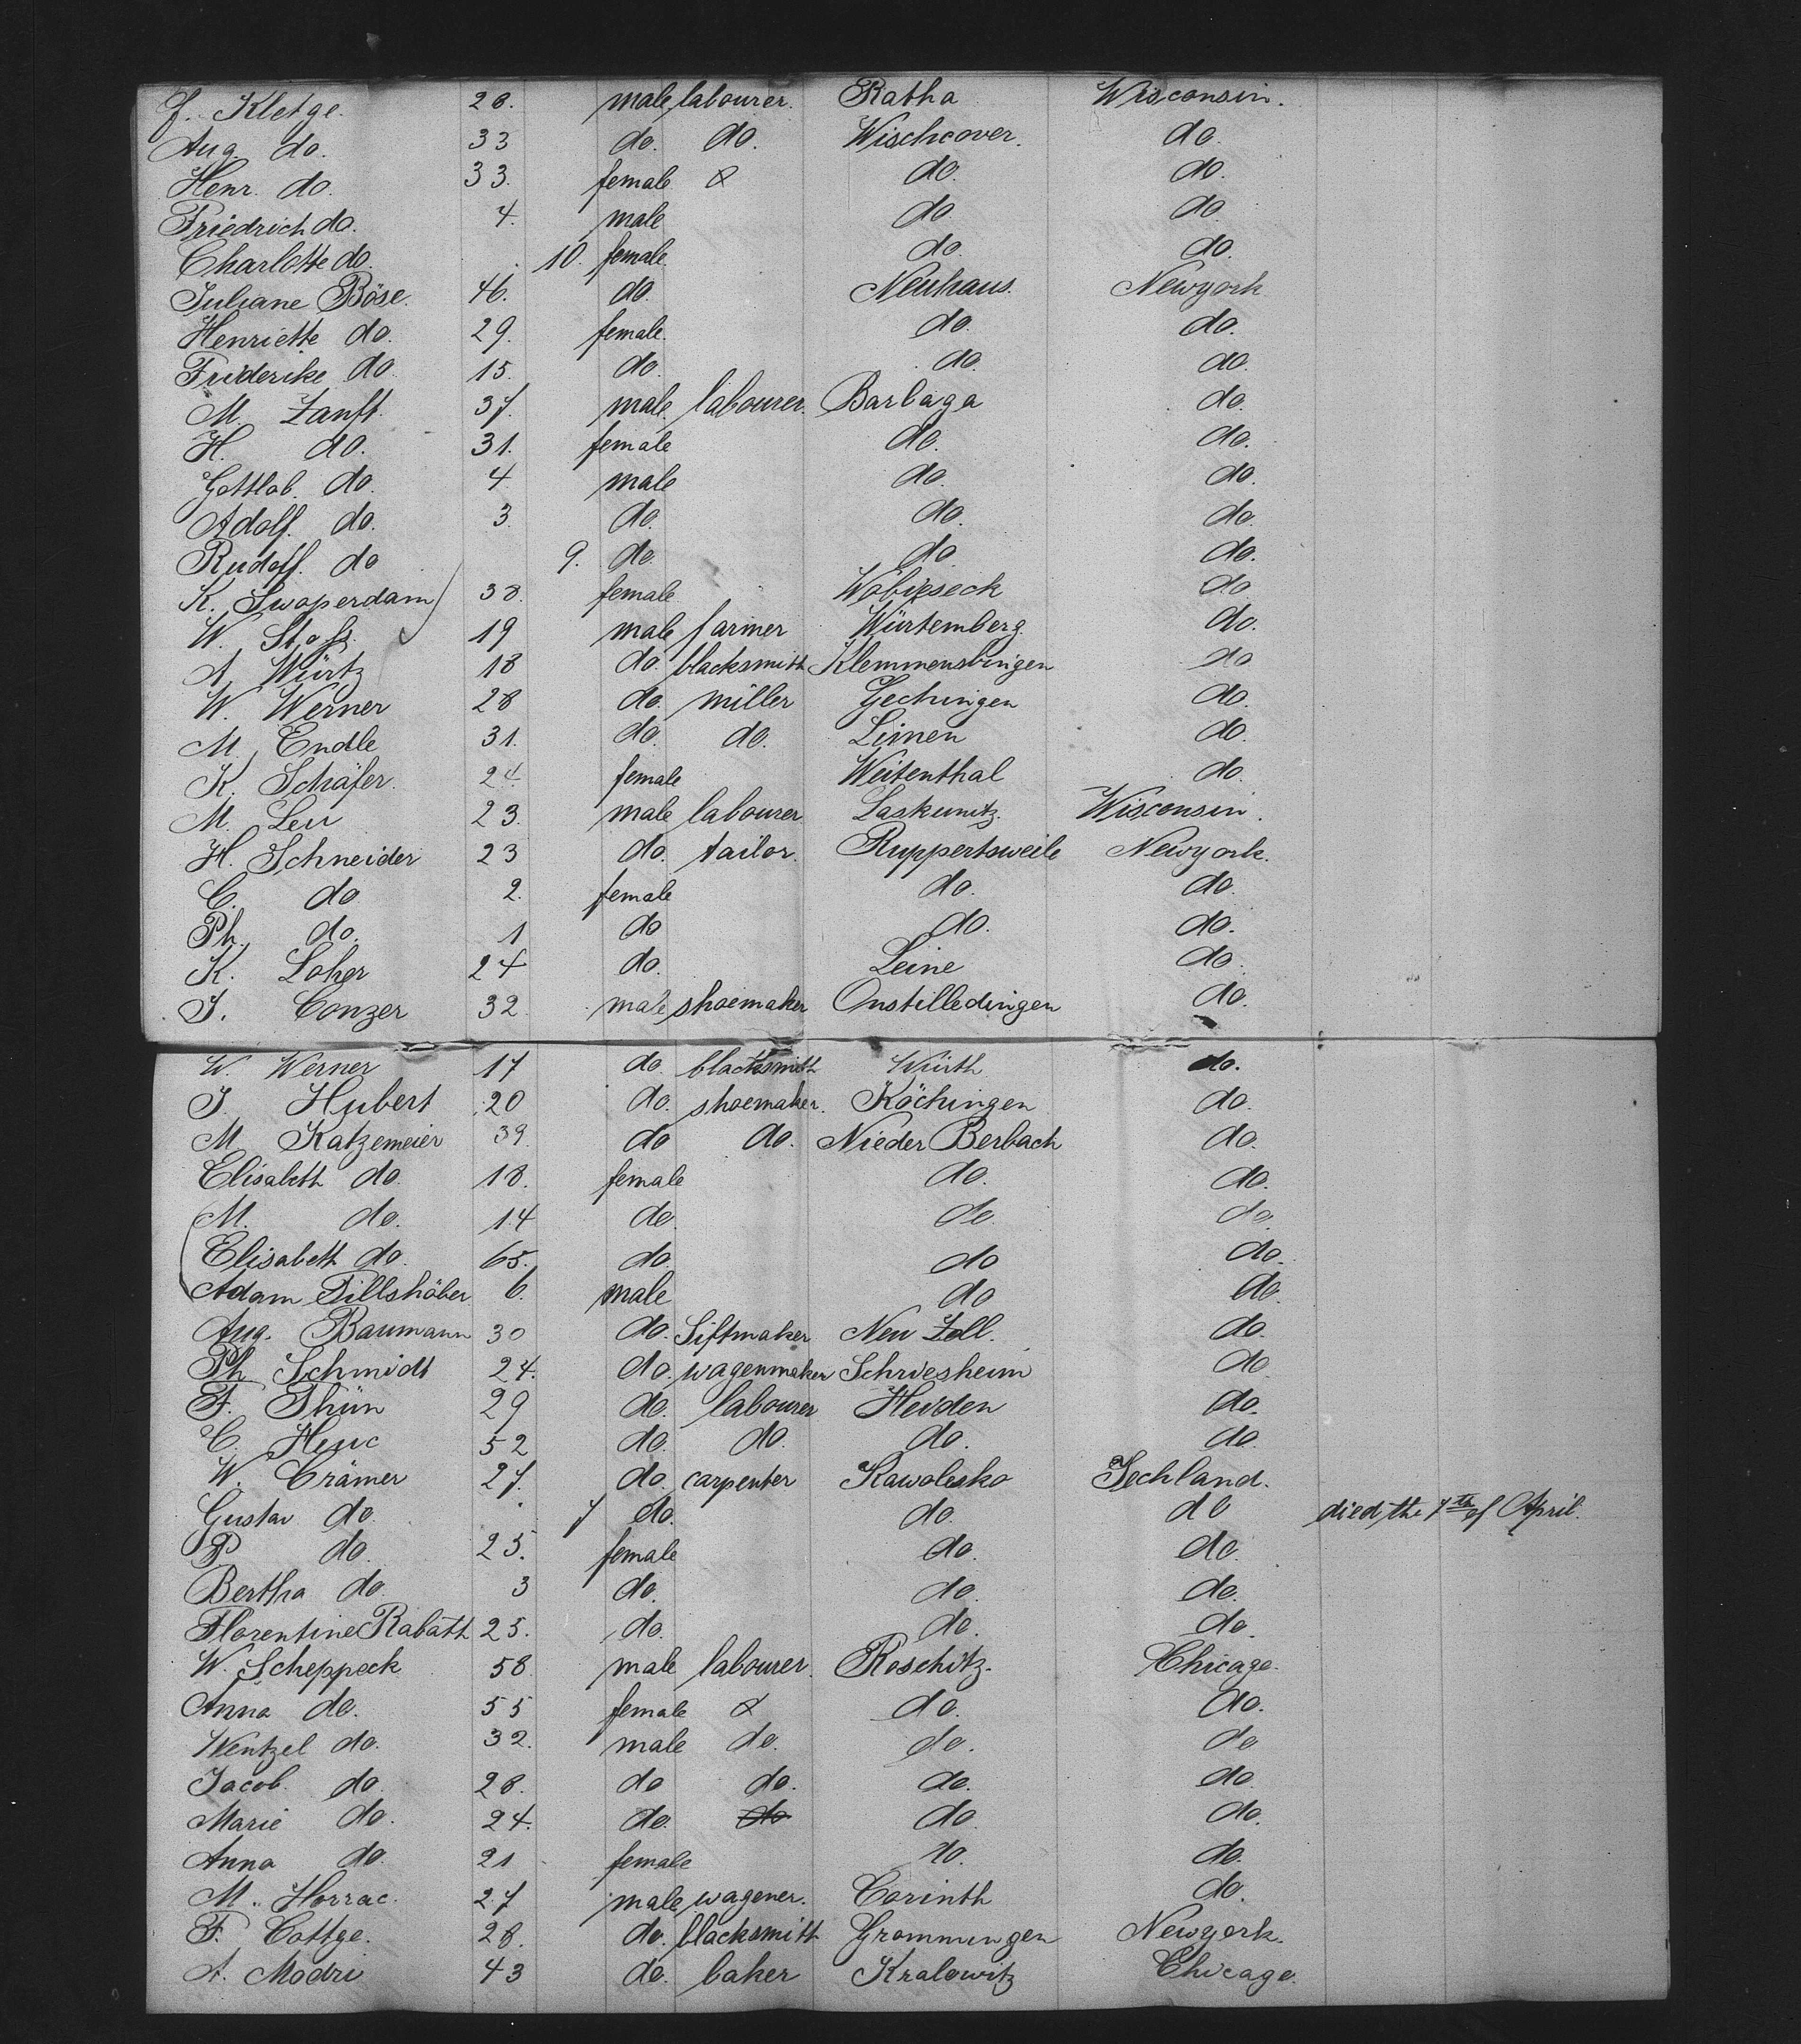 f. Kletge. 28. male labourer. Ratha Wisconsin.
Aug. do. 33 do. do. Wischcover. do.
Henr. do. 33. female do. do.
Friedrich do. 4. male do do
Charlotte do. 10. female do. do.
Juliane Böse. 46. do. Neuhaus. Newyork
Henriette do. 29. female. do. do.
Friderike do. 15. do. do. do.
M. Zanft. 37. male labourer. Barbaga do.
H. do. 31. female do. do.
Gottlob. do. 4 male do. do.
Adolf. do. 3. do. do. do.
Rudolf. do 9. do. do. do.
K. Swoperdam 38. female Wobieseck do
W. 19 male farmer Würtemberg do.
A. Würtz 18 do. blacksmith Klemmensbingen do
W. Werner 28 do. miller Gechingen do.
M. Endle 31. do. do. Limen do.
K. Schäfer. 24. female Weitenthal do.
M. Leu 23. male labourer Laskunitz. Wisconsin.
H. Schneider 23 do. tailor. Ruppertsweile Newyork.
C. do 2. female do. do.
Ph. do. 1 do do. do.
K. Loher 24 do. Leine do.
J. Conzer 32. male shoemaker Onstilledingen do.
W. Werner 17 do. blacksmith Würth do.
J. Hubert 20 do. shoemaker. Köchingen do.
M. Katzemeier 39. do do. Nieder Berbach do.
Elisabeth do. 18. female do. do.
M. do. 14 do. do. do.
Elisabeth do. 65. do. do do.
Adam Pillshöber 6. male do do.
Aug. Baumann 30 do. Siftmaker Neu Zoll. do.
Ph. Schmidt 24. do. wagenmaker Schriesheim do.
F. Thün 29 do. labourer Heiden do.
C. Heuc 52 do. do. do. do.
W. Crämer 27. do. carpenter Kawolesko Jechland.
Gustav do. 7 do. do. do died the 7th of April.
P. do. 25. female do. do.
Bertha do. 3 do. do. do.
Florentine Rabath 25. do. do. do.
W. Scheppeck 58. male labourer. Roschitz. Chicago.
Anna do. 55 female do. do.
Wentzel do. 32. male do. do. do
Jacob. do. 28. do do. do. do.
Marie do. 24. do. do do do.
Anna do. 21 female do. do.
M. Horrac. 27 male wagener. Corinth do.
F. Cottge. 28. do. blacksmith Grommingen Newyork.
A. Modri 43 do. baker Kralowitz Chicago.